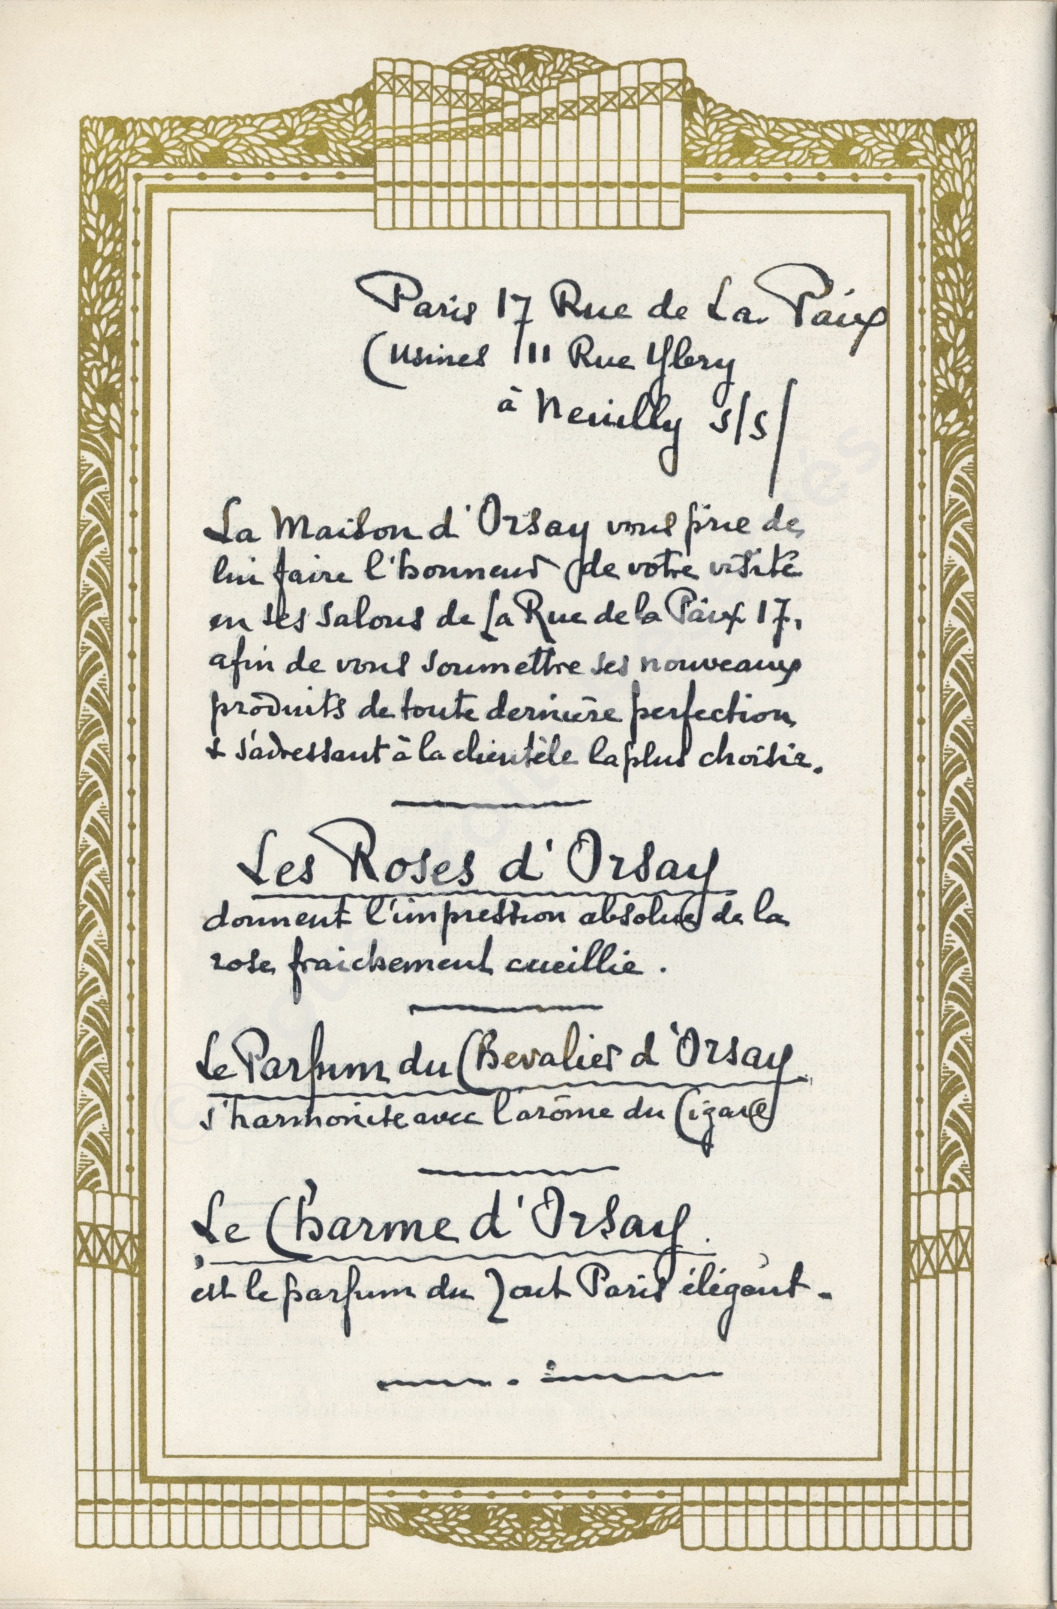 Paris 17 Rue de La Paix
(Usines 111 Rue Ybry
à Neuilly s/s/
La Maison d'Orsay vous prie de
lui faire l'honneur de votre visite
en ses salons de La Rue de la Paix 17,
afin de vous soumettre ses nouveaux
produits de toute dernière perfection
& s'adressant à la clientèle la plus choisie.
Les Roses d'Orsay
donnent l'impression absolue de la
rose fraichement cueillie.
Le Parfum du Chevalier d'Orsay
s'harmonise avec l'arôme du Cigare
Le Charme d'Orsay.
est le parfum du Tout Paris élégant.